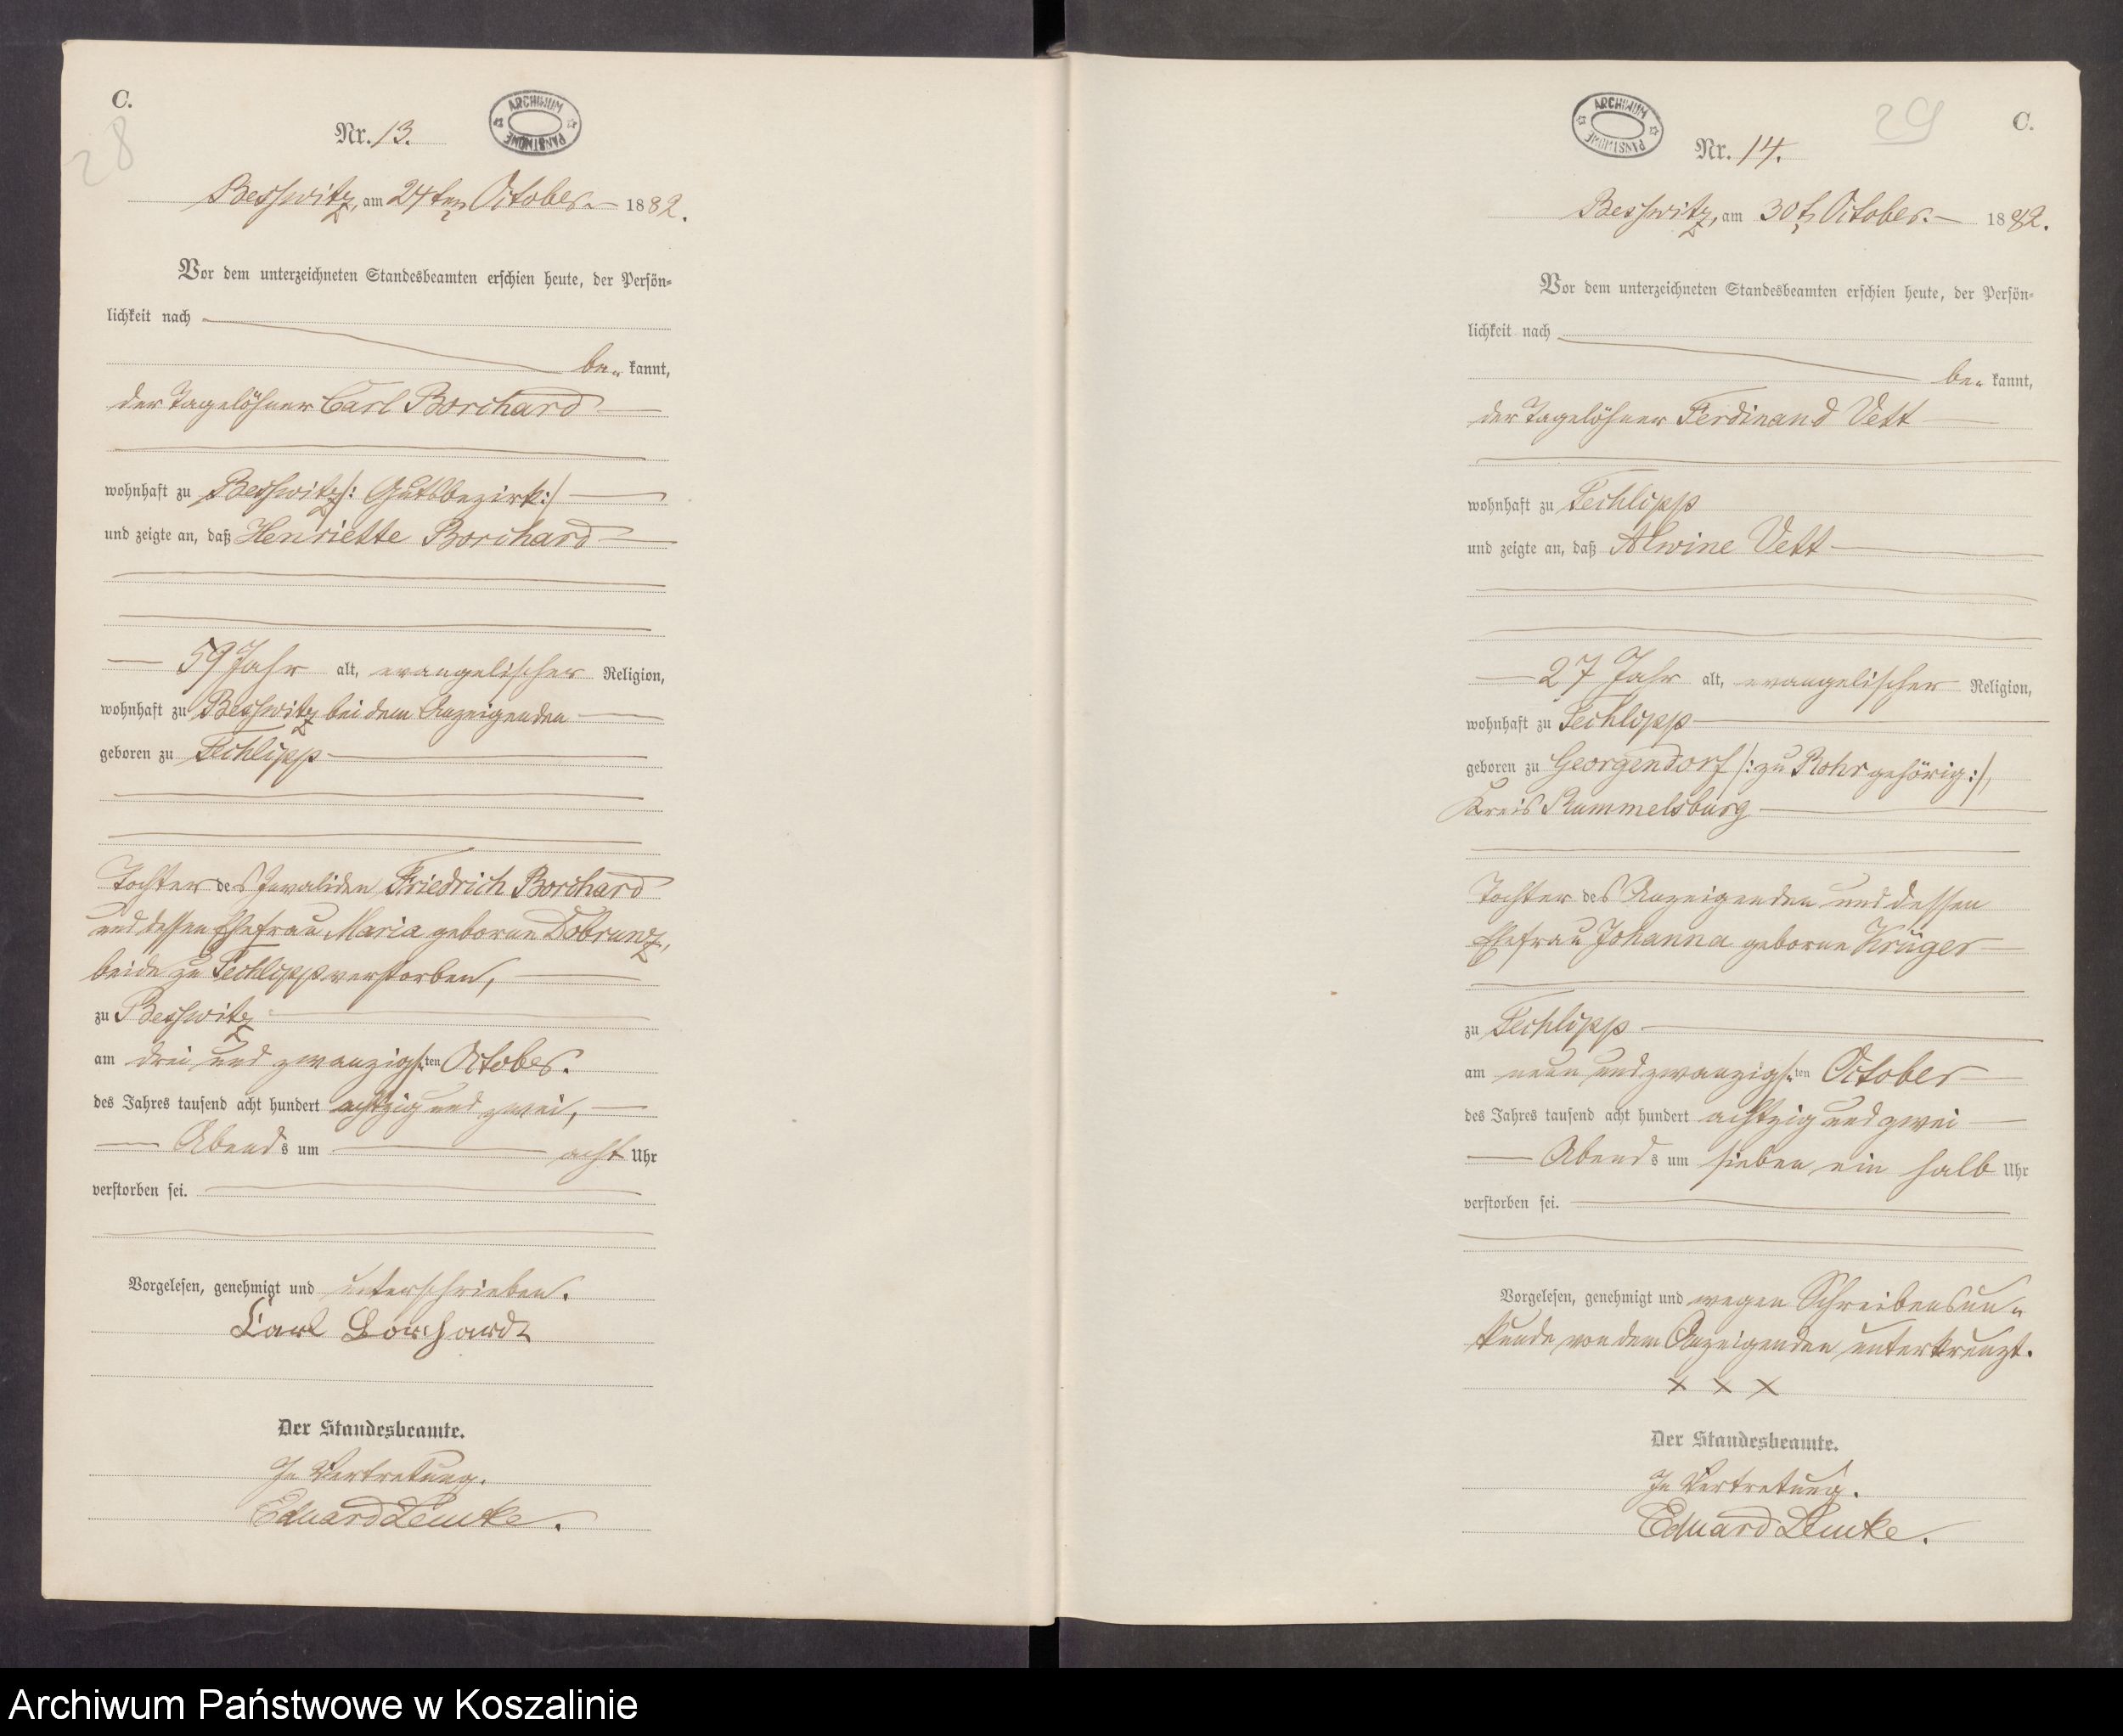 C.
28
Nr. 13.
ARCHIWUM PAŃSTWOWE
Besswitz, am 24ten October 1882.
Vor dem unterzeichneten Standesbeamten erschien heute, der Persön-
lichkeit nach
be- kannt,
der Tagelöhner Carl Borchard
wohnhaft zu Besswitz /: Gutsbezirk :/
und zeigte an, daß Henriette Borchard
59 Jahr alt, evangelischer Religion,
wohnhaft zu Besswitz bei dem Anzeigenden
geboren zu Techlipp
Tochter des Invaliden Friedrich Borchard
und dessen Ehefrau Maria geborne Dobrunz,
beide zu Techlipp verstorben,
zu Besswitz
am drei und zwanzigsten October.
des Jahres tausend acht hundert achtzig und zwei,
Abends um acht Uhr
verstorben sei.
Vorgelesen, genehmigt und unterschrieben.
Carl Borchardt
Der Standesbeamte.
In Vertretung.
Eduard Lemke.
ARCHIWUM PAŃSTWOWE
29
C.
Nr. 14.
Besswitz, am 30t October. 1882.
Vor dem unterzeichneten Standesbeamten erschien heute, der Persön-
lichkeit nach
be- kannt,
der Tagelöhner Ferdinand Vett
wohnhaft zu Techlipp
und zeigte an, daß Alwine Vett
27 Jahr alt, evangelischer Religion,
wohnhaft zu Techlipp
geboren zu Georgendorf /: zu Rohr gehörig :/,
Kreis Rummelsburg
Tochter des Anzeigenden und dessen
Ehefrau Johanna geborne Krüger
zu Techlipp
am neun und zwanzigsten October
des Jahres tausend acht hundert achtzig und zwei
Abends um sieben ein halb Uhr
verstorben sei.
Vorgelesen, genehmigt und wegen Schreibensun-
kunde von dem Anzeigenden unterkreuzt.
x x x
Der Standesbeamte.
In Vertretung.
Eduard Lemke.
Archiwum Państwowe w Koszalinie